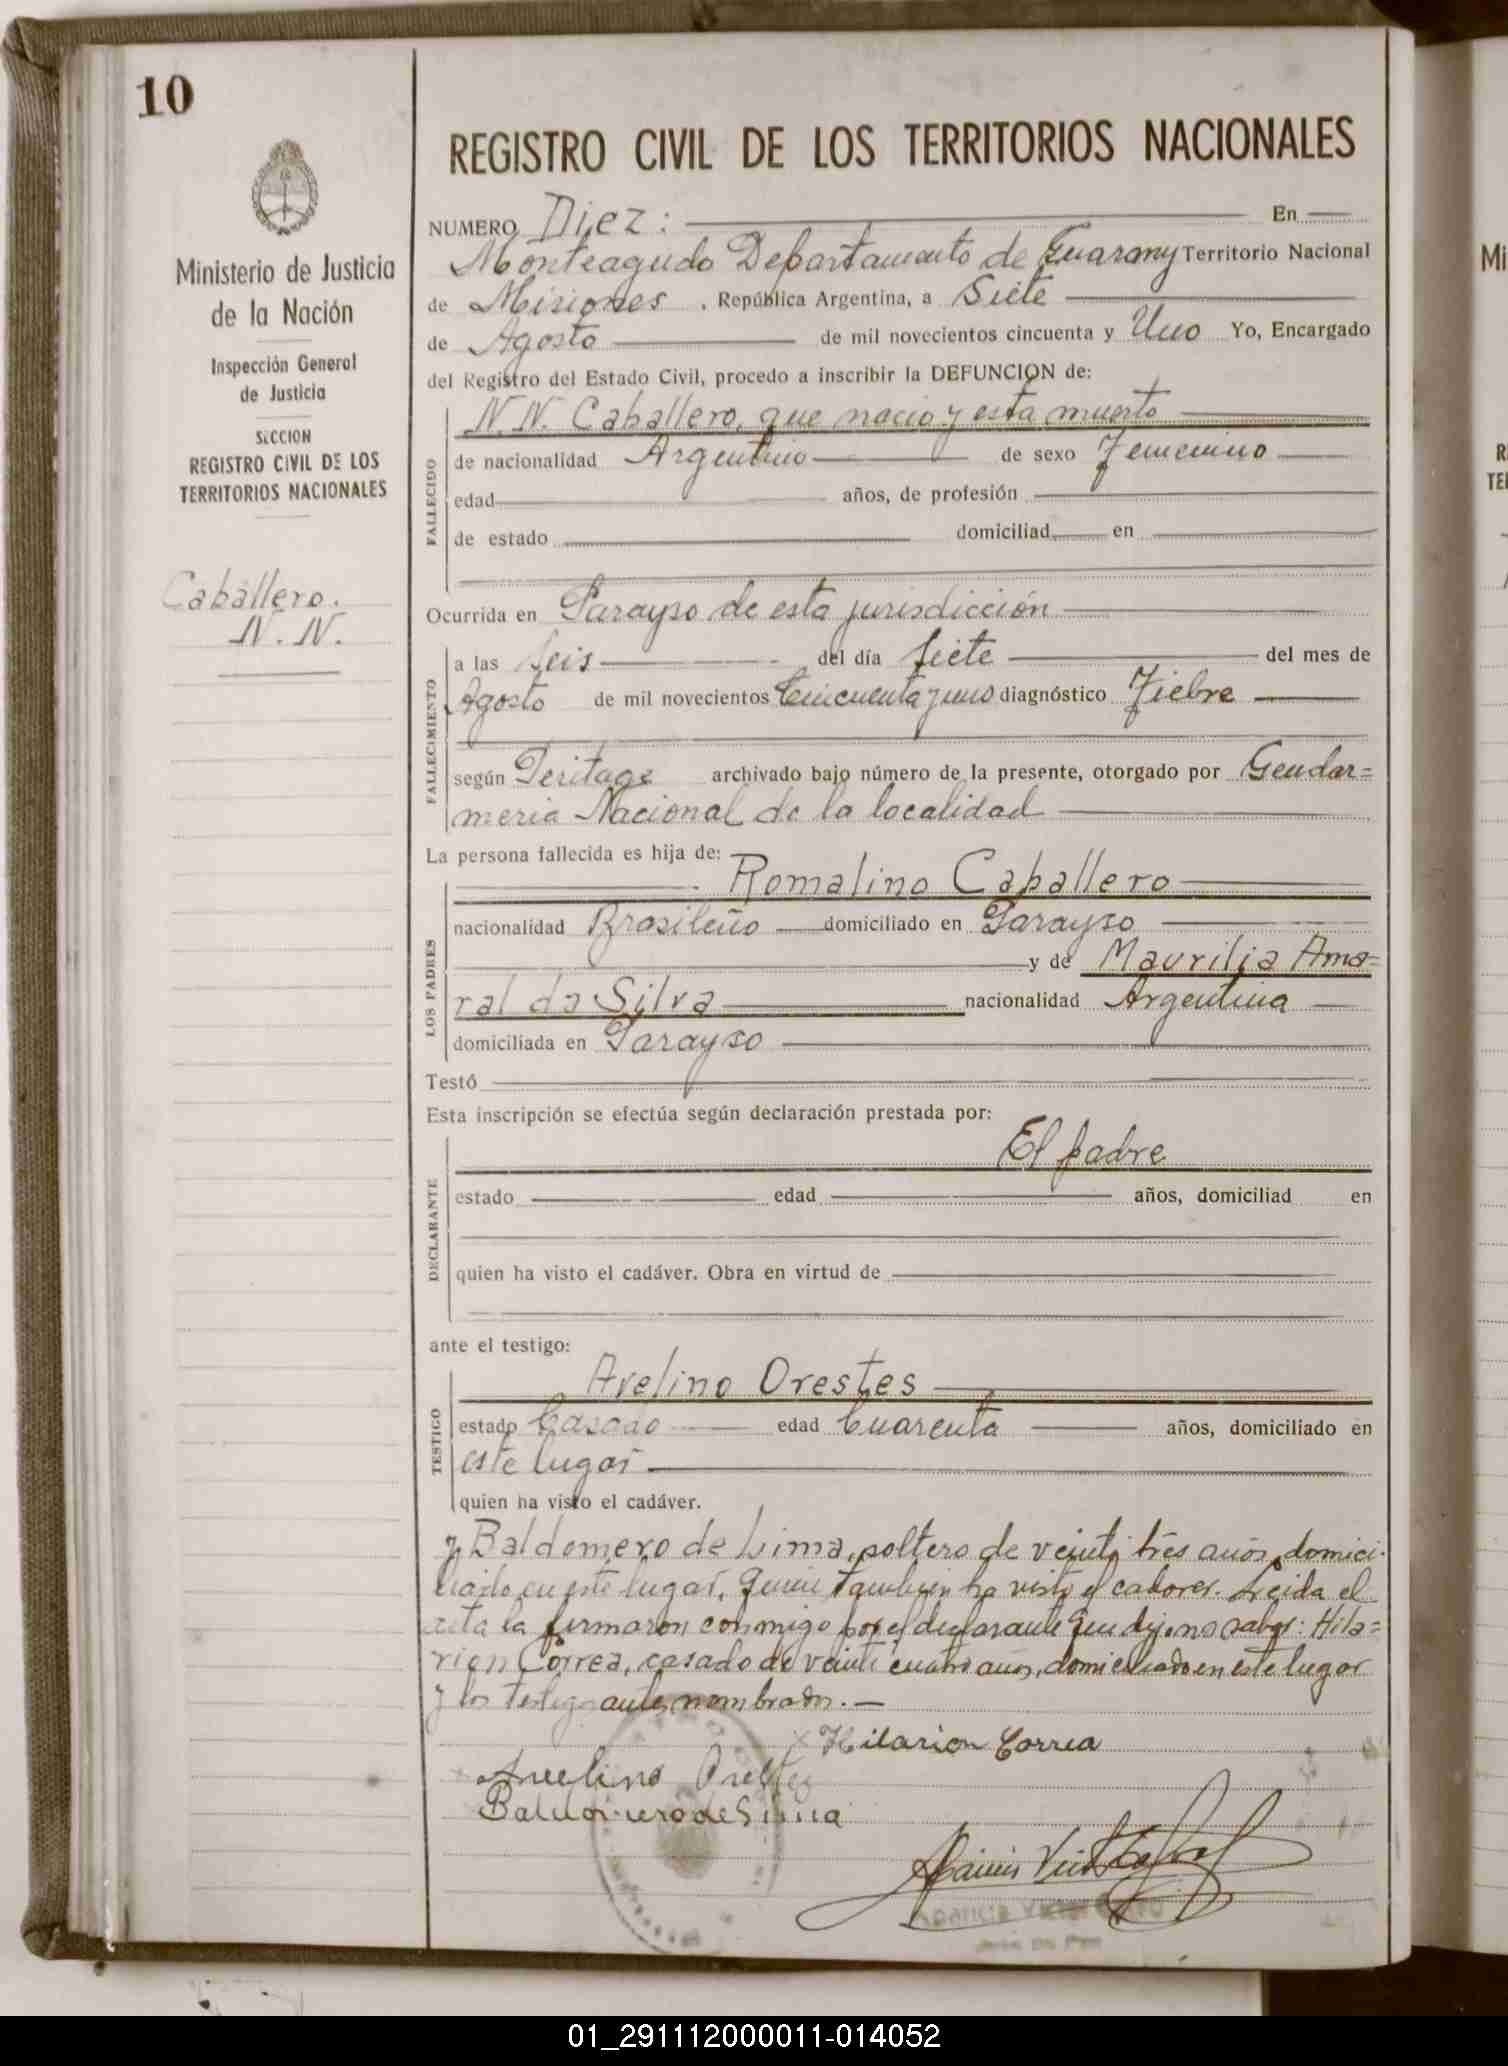 10
Ministerio de Justicia
de la Nación
Inspección General
de Justicia
SECCION
REGISTRO CIVIL DE LOS
TERRITORIOS NACIONALES
Caballero.
N. N.
REGISTRO CIVIL DE LOS TERRITORIOS NACIONALES
NUMERO Diez: En
Monteagudo Departamento de Guarany Territorio Nacional
de Misiones . República Argentina, a Siete
de Agosto de mil novecientos cincuenta y Uno Yo, Encargado
del Registro del Estado Civil, procedo a inscribir la DEFUNCION de:
N. N. Caballero, que nacio y esta muerto
FALLECIDO
de nacionalidad Argentino de sexo Femenino
edad años, de profesión
de estado domiciliad en
Ocurrida en Parayso de esta jurisdicción
FALLECIMIENTO
a las Seis del día Siete del mes de
Agosto de mil novecientos Cincuenta y uno diagnóstico Fiebre
según Peritage archivado bajo número de la presente, otorgado por Gendar=
meria Nacional de la localidad
La persona fallecida es hija de:
Romalino Caballero
LOS PADRES
nacionalidad Brasileño domiciliado en Parayso
y de Maurilia Ama=
ral da Silva nacionalidad Argentina
domiciliada en Parayso
Testó
Esta inscripción se efectúa según declaración prestada por:
El padre
DECLARANTE
estado edad años, domiciliad en
quien ha visto el cadáver. Obra en virtud de
ante el testigo:
Avelino Orestes
TESTIGO
estado Casado edad Cuarenta años, domiciliado en
este lugar
quien ha visto el cadáver.
y Baldomero de Lima, soltero de veinti trés años, domici-
liado en este lugar, quien tambien ha visto el cadaver. Leida el
acta la firmaron conmigo por el declarante que dijo no saber: Hila=
rion Correa, casado de veinti cuatro años, domiciliado en este lugar
y los testigos antes nombrados.—
Hilarion Correa
Avelino Orestes
Baldomero de Lima
01_291112000011-014052